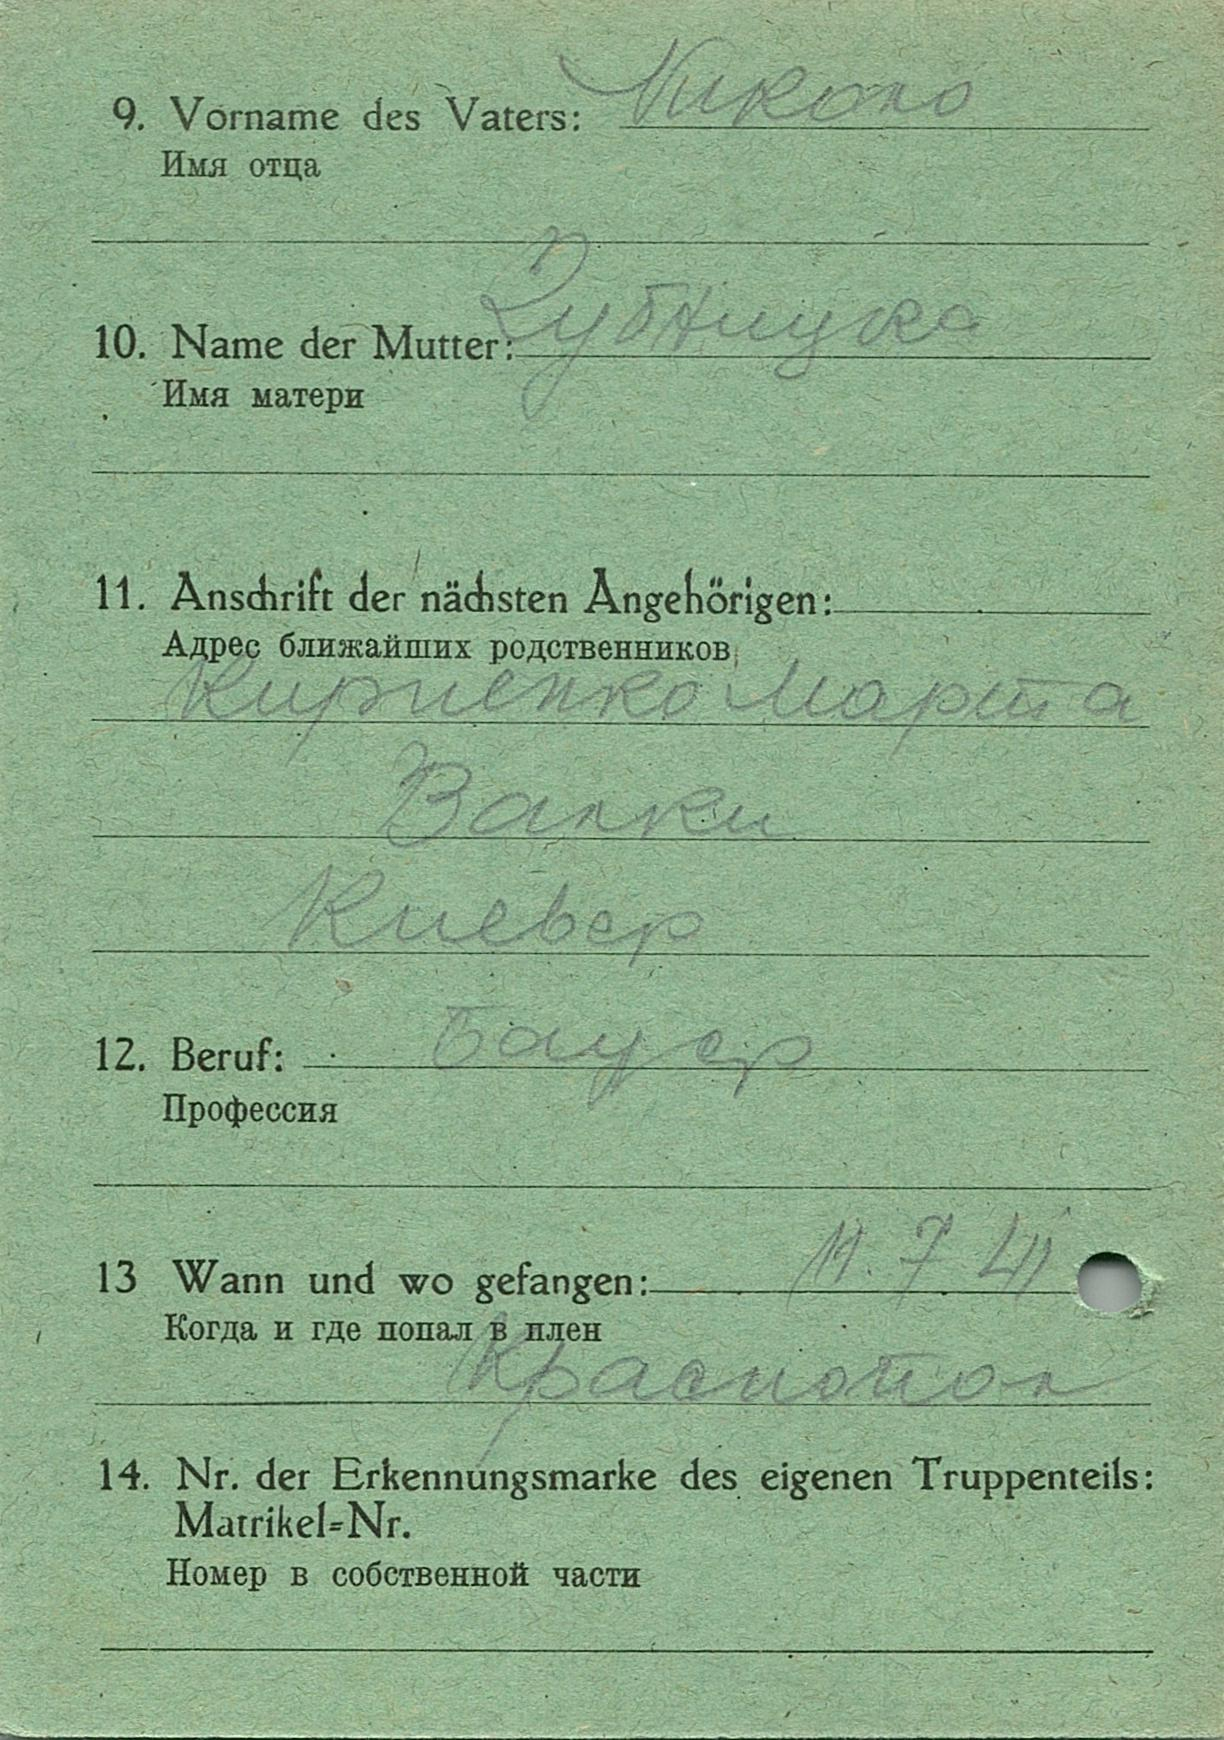 9. Vorname des Vaters: Николо
Имя отца
10. Name der Mutter: Зубницка
Имя матери
11. Anschrift der nächsten Angehörigen:
Адрес ближайших родственников
Кириенко Марта
Валки
Киевер
12. Beruf: Бауер
Профессия
13 Wann und wo gefangen: 11. 7 41
Когда и где попал в плен
Краснопол
14. Nr. der Erkennungsmarke des eigenen Truppenteils:
Matrikel=Nr.
Номер в собственной части